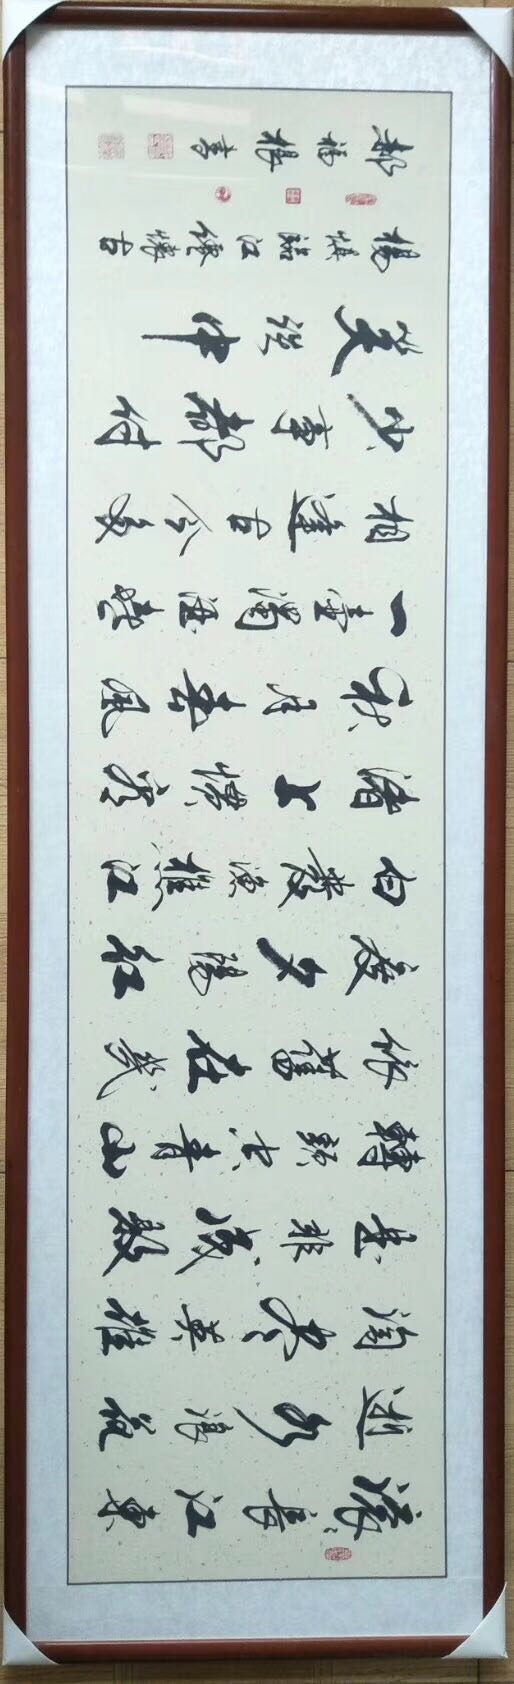 滚〻長江東
逝水浪花
淘盡英雄
是非成敗
轉頭空青山
依舊在幾
度夕陽紅
白發漁樵江
渚上慣看
秋月春風
一壺濁酒喜
相逢古今多
少事都付
笑談中
楊慎臨江僊懷古
郝福根書